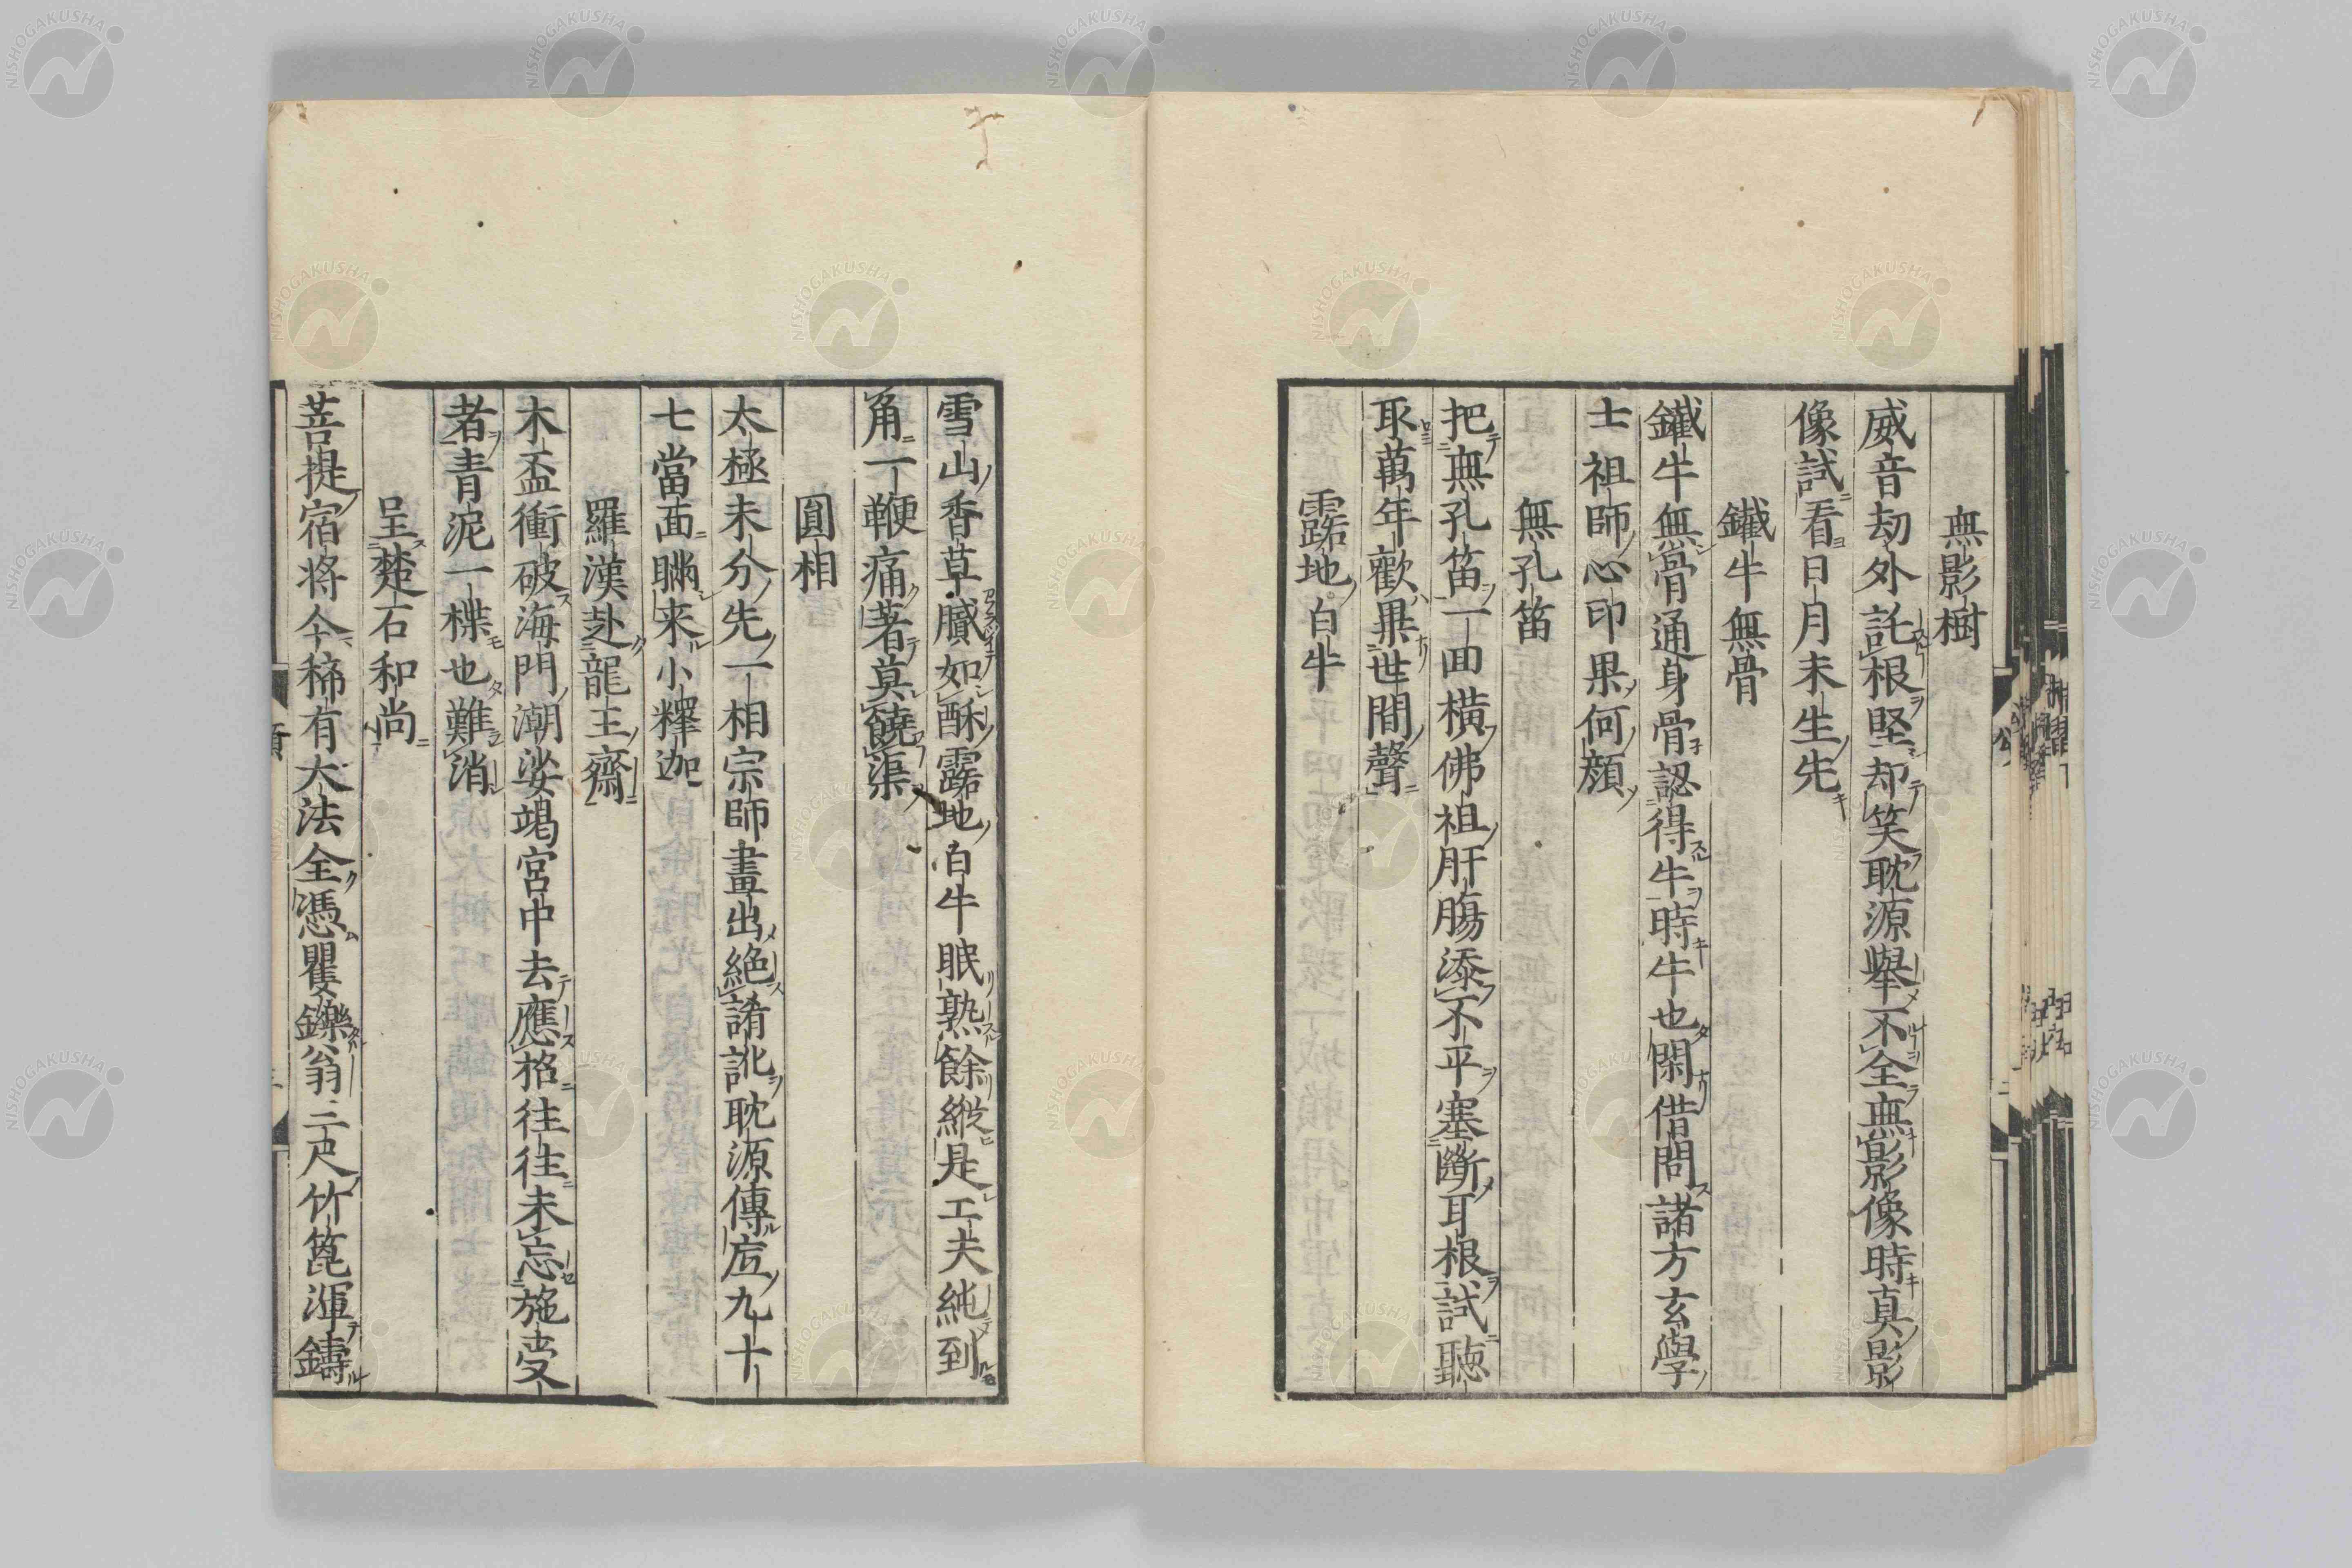 無影樹
威音劫外託根堅却笑耽源舉不全無影像時真影
像試看日月未生先
鐵牛無骨
鐵牛無骨通身骨認得牛時牛也閑借問諸方玄學
士祖師心印果何顔
無孔笛
把無孔笛一回横佛祖肝腸添不平塞斷耳根試聽
取萬年歡果世間聲
露地白牛
雪山香草膩如酥露地白牛眠熟餘縱是工夫純到
角一鞭痛著莫饒渠
圓相
太極未分先一相宗師畫出絶誵訛耽源傳底九十
七當面瞞来小釋迦
羅漢赴龍王齋
木盃衝破海門潮娑竭宮中去應格往往未忘施受
者青泥一楪也難消
呈楚石和尚
菩提宿将今稀有大法全憑矍鑠翁三尺竹篦渾鑄